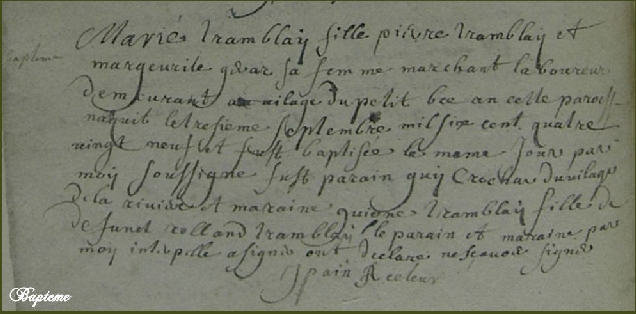 Marie tramblay fille pierre tramblay et
bapteme
margeurite sa femme marchant laboureur
demeurant au vilage du petit bee an cette paroisse
naquit le tresieme septembre mil six cent quatre
vingt neuf et fust baptisee le mame jour par
moy soussigne fust parain guy Crochar du vilage
de la riviere et maraine tramblay fille de
de funct rolland tramblay le parain et maraine par
moy intepelle a signe ont declare ne scavoir signe
Bapteme